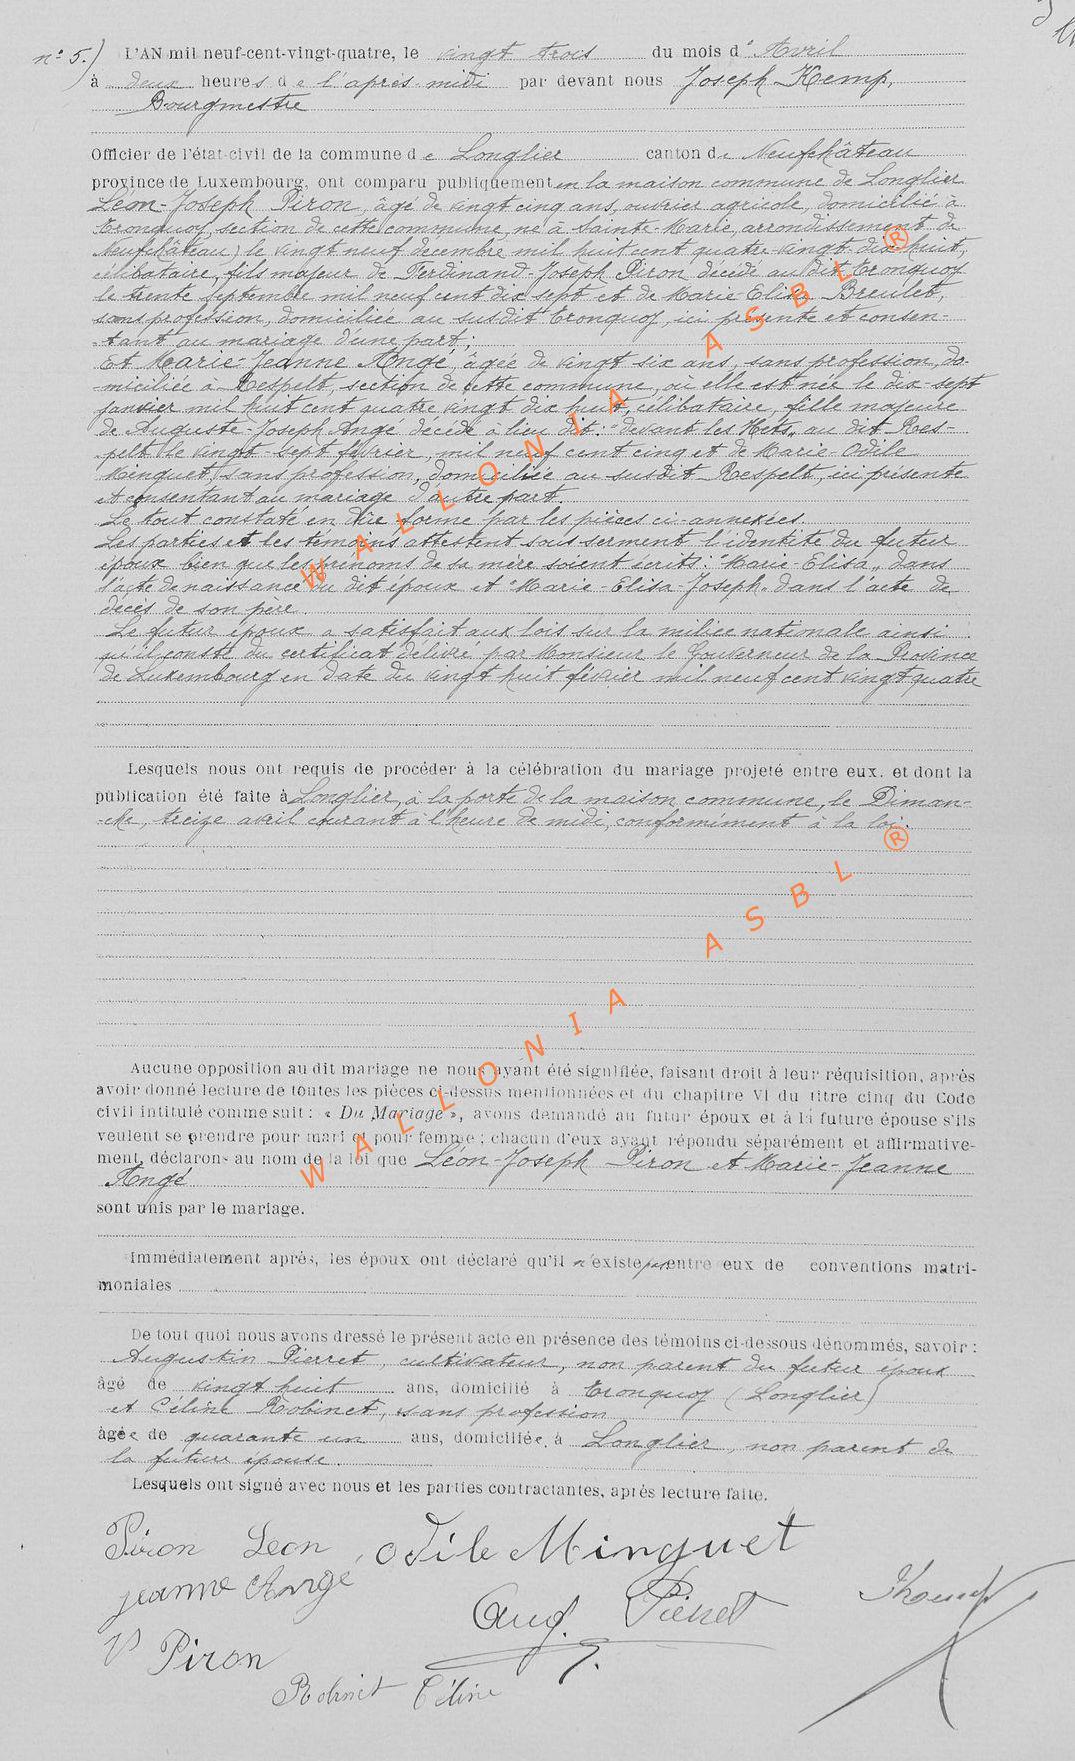 n° 5.) L'AN mil neuf-cent-vingt-quatre, le vingt trois du mois d'Avril
à deux heures de l'après-midi par devant nous Joseph Kemp,
Bourgmestre
Officier de l'état-civil de la commune de Longlier canton de Neufchâteau
province de Luxembourg, ont comparu publiquement en la maison commune de Longlier
Léon-Joseph Piron, âgé de vingt cinq ans, ouvrier agricole, domicilié à
Tronquoy, section de cette commune, né à Sainte-Marie, arrondissement de
Neufchâteau) le vingt neuf décembre mil huit cent quatre-vingt-dix huit,
célibataire, fils majeur de Ferdinand-Joseph Piron décédé au dit Tronquoy
le trente septembre mil neuf cent dix sept et de Marie Elisa Breulet,
sans profession, domiciliée au susdit Tronquoy, ici présente et consen-
-tant au mariage d'une part;
Et Marie-Jeanne Angé, âgée de vingt six ans, sans profession, do-
-miciliée à Respelt, section de cette commune, où elle est née le dix-sept
janvier mil huit cent quatre vingt dix huit, célibataire, fille majeure
de Auguste-Joseph Angé décédé à lieu dit: "devant les Hets" au dit Res-
-pelt le vingt-sept février, mil neuf cent cinq et de Marie-Odile
Minguet, sans profession, domiciliée au susdit Respelt, ici présente
et consentant au mariage d'autre part.
Le tout constaté en dûe forme par les pièces ci-annexées.
Les parties et les témoins attestent sous serment l'identité du futur
époux bien que les prénoms de sa mère soient écrits: "Marie-Elisa" dans
l'acte de naissance du dit époux et "Marie-Elisa-Joseph" dans l'acte de
décès de son père
Le futur époux a satisfait aux lois sur la milice nationale ainsi
qu'il conste du certificat délivré par Monsieur le Gouverneur de la Province
de Luxembourg en date du vingt huit février mil neuf cent vingt quatre
Lesquels nous ont requis de procéder à la célébration du mariage projeté entre eux, et dont la
publication été faite à Longlier, à la porte de la maison commune, le Diman-
-che, treize avril courant à l'heure de midi, conformément à la loi.
Aucune opposition au dit mariage ne nous ayant été signifiée, faisant droit à leur réquisition, après
avoir donné lecture de toutes les pièces ci-dessus mentionnées et du chapitre VI du titre cinq du Code
civil intitulé comme suit : « Du Mariage », avons demandé au futur époux et à la future épouse s'ils
veulent se prendre pour mari et pour femme ; chacun d'eux ayant répondu séparément et affirmative-
ment, déclarons au nom de la loi que Léon-Joseph Piron et Marie-Jeanne
Angé
sont unis par le mariage.
Immédiatement après, les époux ont déclaré qu'il n'existe pas entre eux de conventions matri-
moniales
De tout quoi nous avons dressé le présent acte en présence des témoins ci-dessous dénommés, savoir :
Augustin Pierret, cultivateur, non parent du futur époux
âgé de vingt huit ans, domicilié à Tronquoy (Longlier)
et Céline Robinet, sans profession
âgée de quarante un ans, domiciliée à Longlier, non parent de
la future épouse.
Lesquels ont signé avec nous et les parties contractantes, après lecture faite.
Piron Leon, Odile Minguet
jeanne Ange
Aug. Pierret
JKemp
Vve Piron
Robinet Céline
WALLONIA ASBL ®
WALLONIA ASBL ®